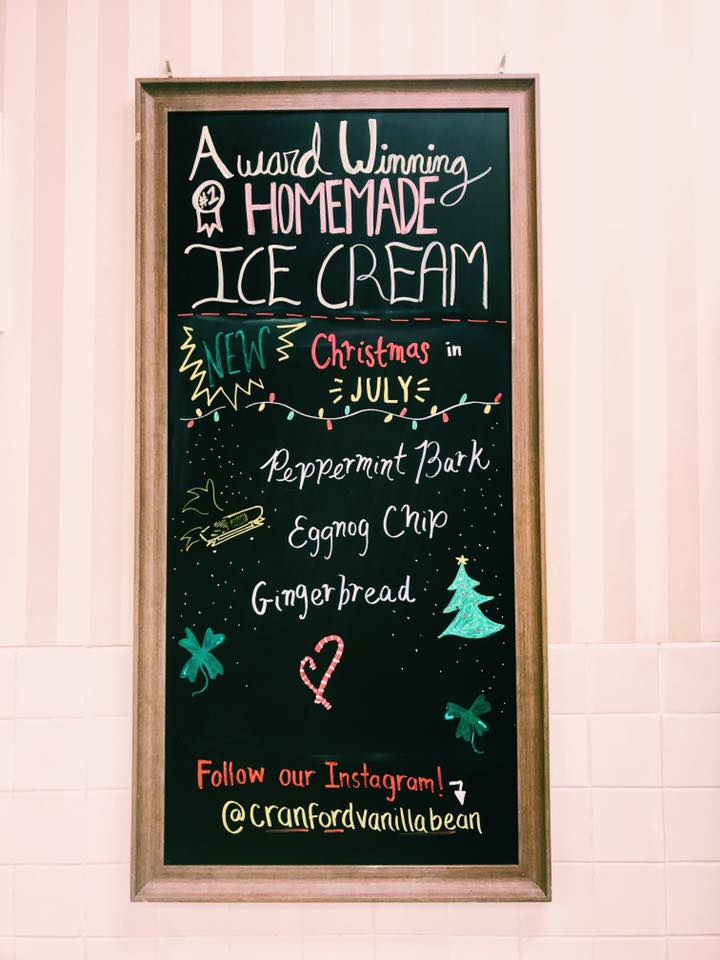 Award Winning
#1 HOMEMADE
ICE CREAM
NEW Christmas in
JULY
Peppermint Bark
Eggnog Chip
Gingerbread
Follow our Instagram!
@cranfordvanillabean